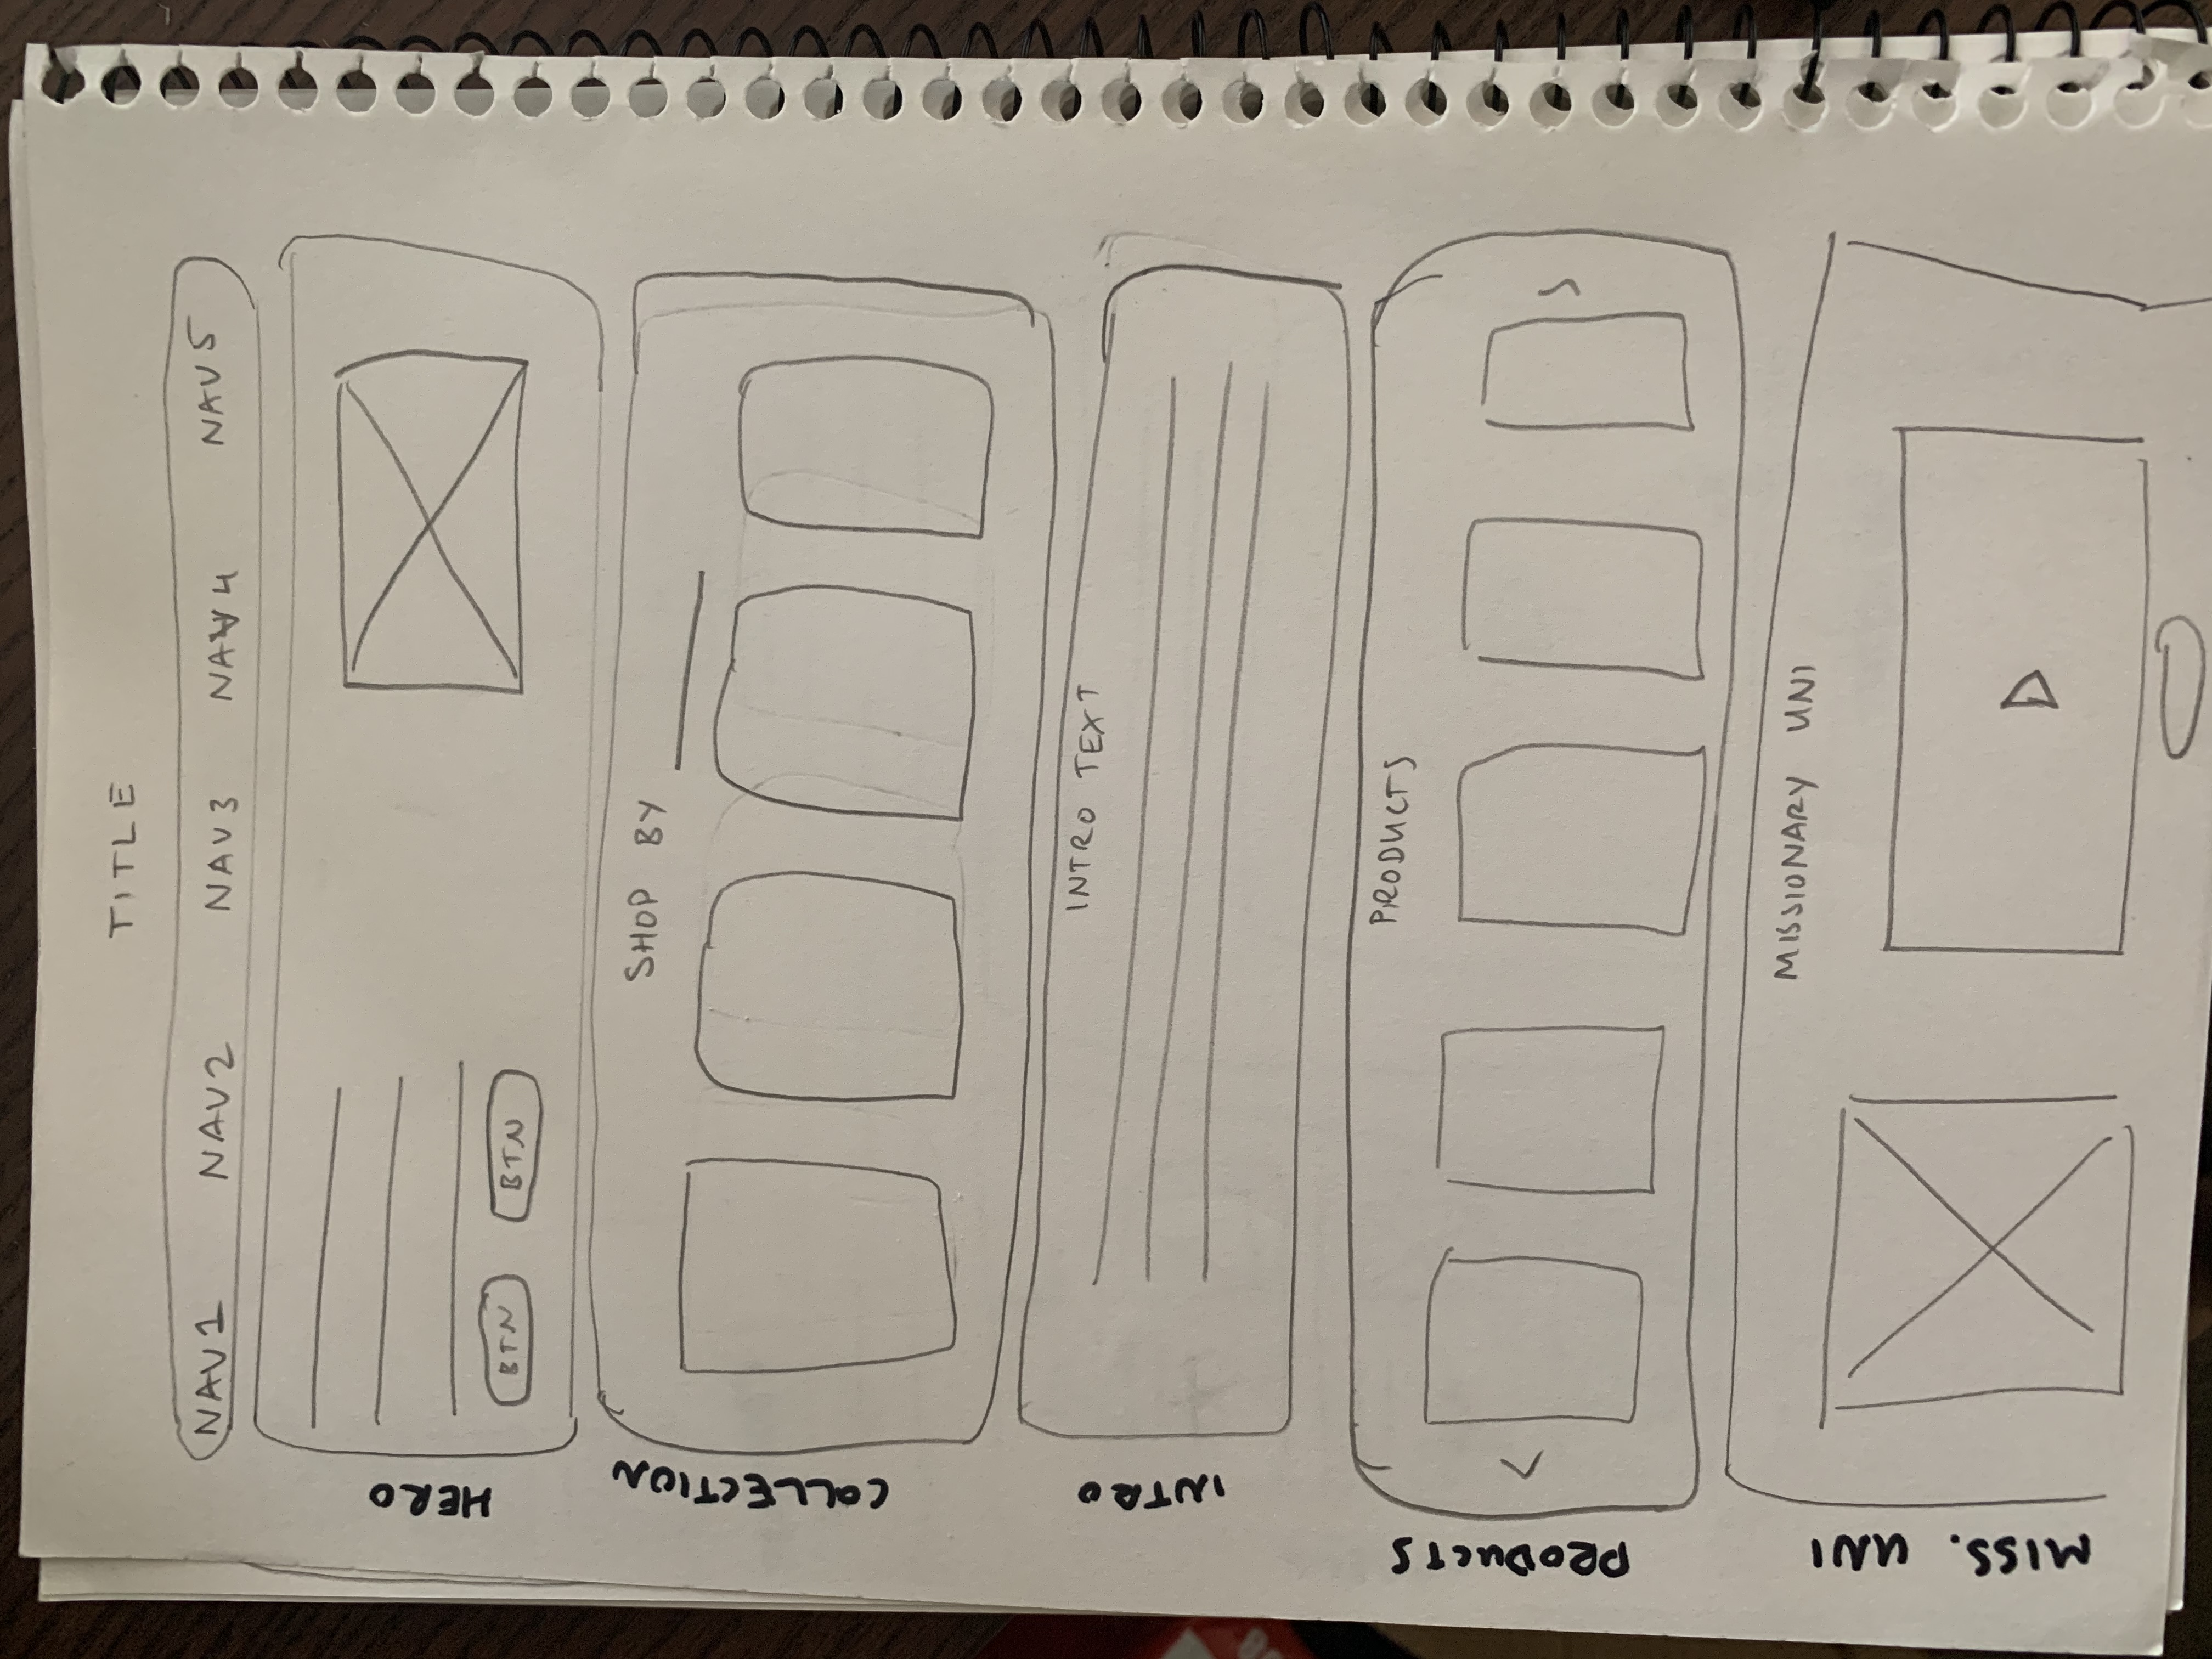 TITLE
NAV1 NAV2 NAV3 NAV4 NAV5
HERO
BTN BTN
COLLECTION
SHOP BY
INTRO
INTRO TEXT
PRODUCTS
PRODUCTS
< >
MISS. UNI
MISSIONARY UNI